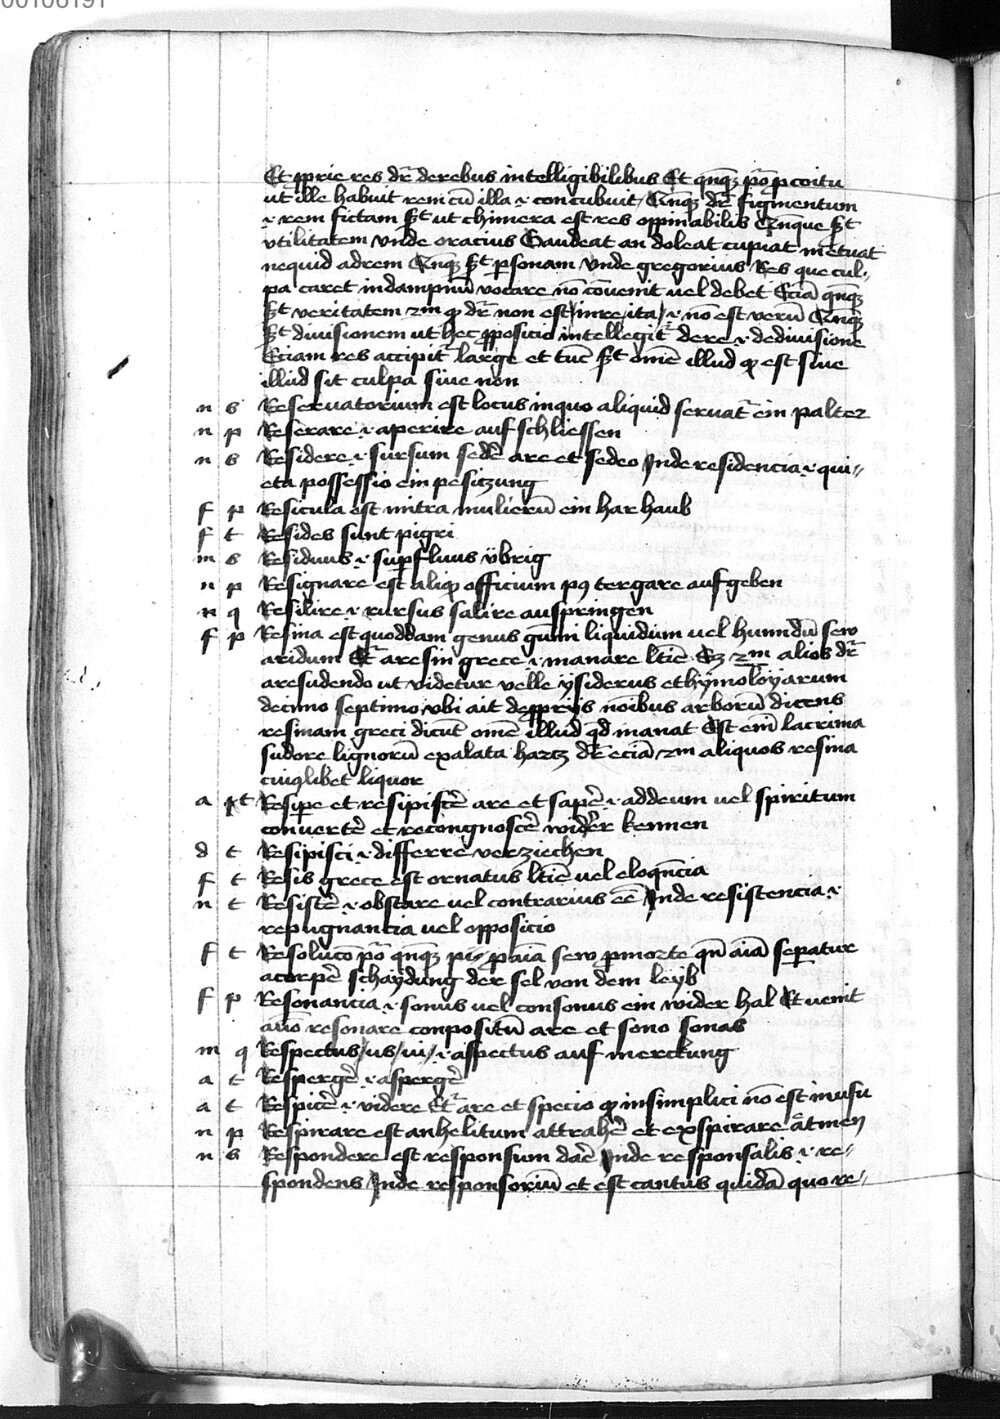 00106191
Et ꝓprie res dr̄ derebus intelligibilibus Et qn̄qꝫ pō ꝓ coitu
ut ille habuit rem cū illa ⁊ concubuit / Qn̄qꝫ dr̄ figmentum
⁊ rem fictam st̄ ut chimera est res oppinabilis Qn̄que st̄
vtilitatem vnde oracius Gaudeat an doleat cupiat metuat
nequid adrem Qn̄qꝫ st̄ ꝑsonam vnde gregorius Res que cul-
pa caret indampnū vocare nō cōuenit vel debet Eciā qn̄qꝫ
st̄ veritatem 2m ꝙ dr̄ non est / inre / ita / ⁊ nō est verū Qn̄qꝫ
st̄ divisionem ut hec ꝓposicio intellegit̄ dere ⁊ dedivisione
Etiam res accipit̄ large et tūc st̄ om̄e illud ꝙ est siue
illud sit culpa siue non
n s Reseruatorium est locus inquo aliquid seruat̄ ein palter
n p Reserare ⁊ aperire auf schliessen
n s Residere ⁊ sursum sedē are et sedeo Inde residencia ⁊ qui-
eta possessio ein pesitzung
f p Resicula est mitra mulierū ein har haub
f t Resides sunt pigri
m s Residuus ⁊ suꝑfluus übrig
n p Resignare est aliqꝫ officium pꝰ tergare aufgeben
n q Resilire ⁊ rursus salire auspringen
f p Resina est quoddam genus gūmi liquidum vel humidū sew
aridum Et̄ aresin grece ⁊ manare ltīe Sꝫ 2m alios dr̄
aresudendo ut videtur velle ÿsiderus ethÿmoloÿarum
decimo septimo vbi ait deꝓprijs noībus arborū dicens
resinam greci dicūt om̄e illud qd manat Est eīm lacrima
sudore lignorū exalata hartz dr̄ eciā 2m aliquos resina
cuiꝰlibet liquor
a pt Resiꝑe et resipiscē̄ are et sapē̄ ⁊ addeum vel spiritum
convertē̄ et recongnoscē̄ wider kennen
d t Resipisci ⁊ differre verziechen
f t Resis grece est ornatus ltīe vel eloqn̄cia
n t Resistē̄ ⁊ obstare vel contrarius eē̄ Inde resistencia ⁊
repugnancia vel opposicio
f t Resolucō pō qn̄qꝫ ꝓaīa sew ꝓmorte qn̄ aīa seꝑatur
acorpē̄ schaÿdung der sel von dem leÿb
f p Resonancia ⁊ sonus vel consonus ein wider hal Et uenit
auō resonare compositū are et sono sonas
m q Respectus / us / ui / ⁊ aspectus auf merckung
a t Respergē̄ ⁊ aspergē̄
a t Respicē̄ ⁊ videre Et̄ are et specio ꝙ insimplici nō est inusu
n p Respirare est anhelitum attrahē̄ et exspirare ātmen
n s Respondere est responsum dac̄e Inde responsalis ⁊ re-
spondens Inde responsoriū et est cantus quidā quo re-